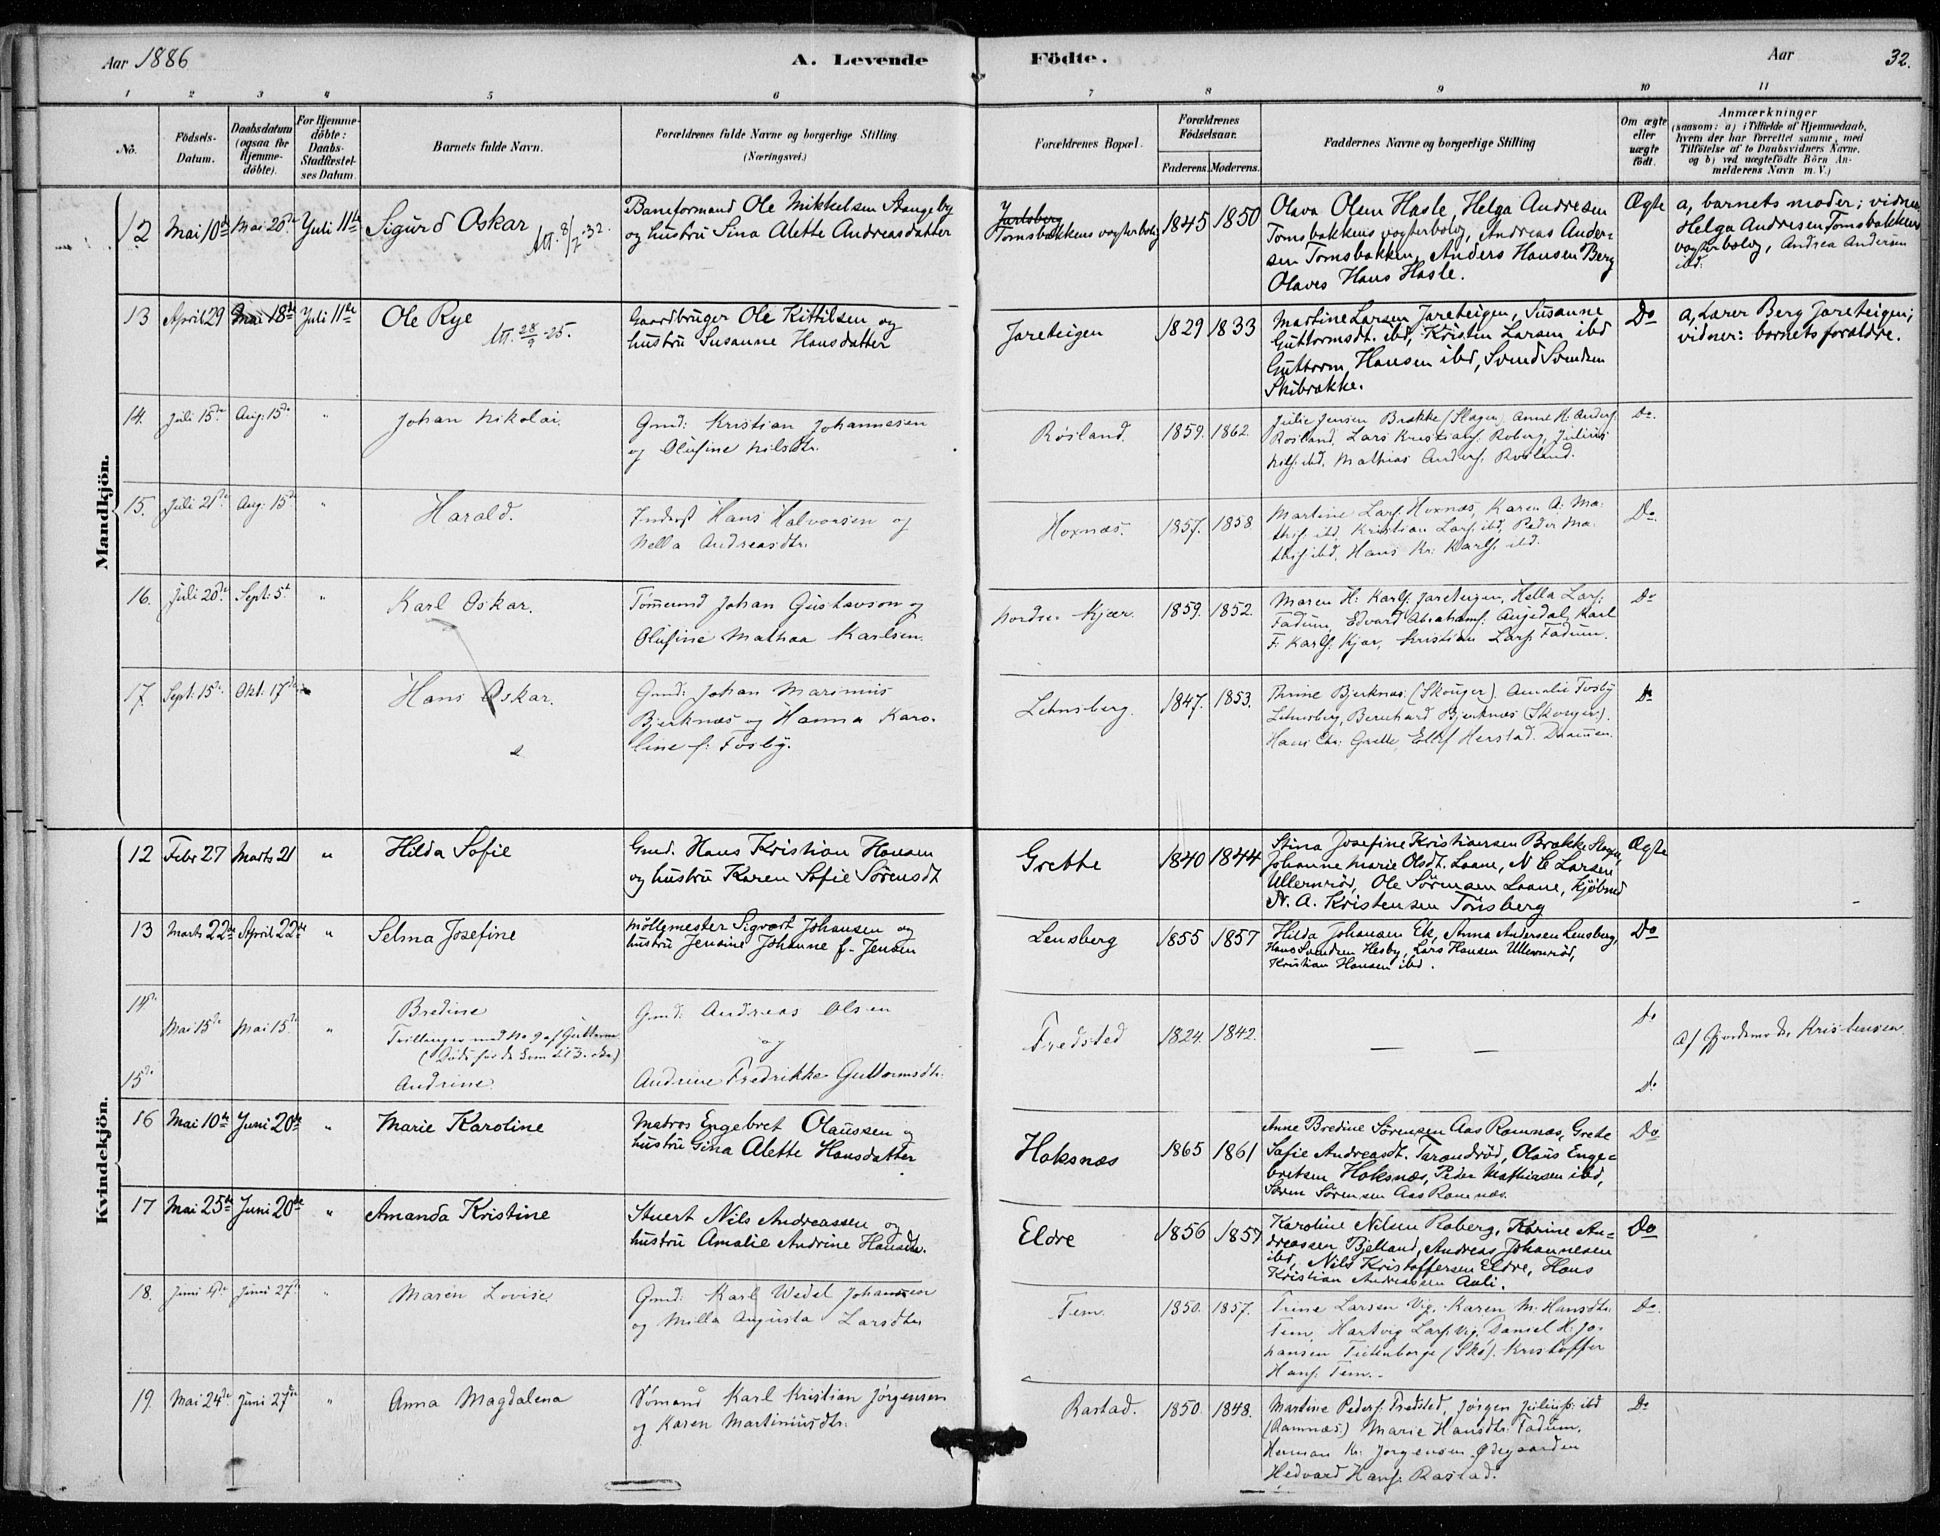 Aar 1886
A. Levende
Födte.
Aar
32.
1 2 3 4 5 6 7 8 9 10 11
No.
Födsels-
Datum.
Daabsdatum
(ogsaa for
Hjemme-
döbte).
For Hjemme-
döbte:
Daabs-
Stadfæstel-
ses Datum.
Barnets fulde Navn.
Forældrenes fulde Navne og borgerlige Stilling
(Næringsvei.)
Forældrenes Bopæl.
Forældrenes
Födselsaar.
Faderens. Moderens.
Faddernes Navne og borgerlige Stilling
Om ægte
eller
uægte
födt.
Anmærkninger
(saasom: a) i Tilfælde af Hjemmedaab,
hvem der har forrettet samme, med
Tilföielse af to Daabsvidners Navne,
og b) ved uægtefödte Börn An-
melderens Navn m. V.)
Mandkjön.
12 Mai 10de Mai 20de Juli 11te Sigurd Oskar
Att. 8/7-32.
Baneformand Ole Mikkelsen Stangeby
og hustru Sina Alette Andreasdatter
Jarlsberg
Tomsbakkens vogterbolig
1845 1850
Olava Olsen Hasle, Helga Andresen
Tomsbakkens vogterbolig, Andreas Ander-
sen Tomsbakken, Anders Hansen Berg
Olaves Hans Hasle.
Ægte
a, barnets moder; vidner
Helga Andresen Tomsbakkens
vogterbolig, Andrea Andersen
ibd.
13 April 29 Mai 18de Juli 11te Ole Rye
Att. 28/9-25.
Gaardbruger Ole Kittilsen og
hustru Susanne Hansdatter
Jareteigen
1829 1833
Martine Larsen Jareteigen, Susanne
Guttormsdt. ibd, Kristin Larsen ibd
Guttorm Hansen ibd, Svend Svendsen
Skibrække.
Do
a, Lærer Berg Jareteigen;
vidner: barnets forældre.
14. Juli 15de Aug: 15de " Johan Nikolai.
Gmd: Kristian Johannesen
og Olufine Nilsdtr.
Røsland.
1859. 1862.
Julie Jensen Brække (Slagen) Anne H. Anders.
Rosland, Lars Kristians. Roberg, Julius
Nils. ibd. Mathias Anders. Rosland.
Do.
15. Juli 21de Aug: 15de " Harald.
Inderst Hans Halvorsen og
Nella Andreasdtr.
Hoxnæs.
1857. 1858
Martine Lars. Hoxnæs, Karen A. Ma-
this. ibd. Kristian Lars. ibd, Peder Ma-
this. ibd. Hans Kr. Karls. ibd.
Do.
16. Juli 20de Sept: 5te " Karl Oskar.
Tømmd Johan Gustavson og
Olufine Mathea Karlsen.
Nordre Kjær.
1859. 1852.
Maren H. Karls. Jareteigen, Hella Lars.
Fadum, Edvard Abrahams. Augedal, Karl
F. Karls. Kjær, Kristian Lars. Fadum.
Do
17. Sept: 15de Okt: 17de Hans Oskar.
Gmd: Johan Marinius
Bjerknæs og Hanna Karo-
line f. Fosby.
Lehnsberg.
1847. 1853.
Thrine Bjerknæs (Skouger). Amalie Fosby
Lehnsberg, Bernhard Bjerknæs (Skouger).
Hans Chr: Grette, Ellef Herstad. Drammen.
Do
Kvindekjön.
12 Febr 27 Marts 21 " Hilda Sofie
Gmd. Hans Kristian Hansen
og hustru Karen Sofie Sørensdt
Grette
1840 1844
Stina Josefine Kristiansen Brække Slagen,
Johanne Marie Olsdt. Laane, N C Larsen
Ullernrød, Ole Sørensen Laane, Kjøbmd
N. A. Kristensen Tönsberg
Ægte
13 Marts 22de April 22de " Selma Josefine
Møllemester Sigvart Johansen og
hustru Jensine Johanne f. Jensen
Lensberg
1855 1857
Hilda Johansen Ek, Anna Andersen Lensberg,
Hans Svendsen Hesby, Lars Hansen Ullernrød,
Kristian Hansen ibd.
Do
14de Mai 15de Mai 15de " Bredine
Trillinger med No 9 af Guttene
Gmd: Andreas Olsen
og
Fredsted
1824. 1842.
Do
af Gjordemoder Kristensen
15de Andrine
Andrine Fredrikke Guttormsdtr.
Do
16 Mai 10de Juni 20de " Marie Karoline
Matros Engebret Olaussen og
hustru Gina Alette Hansdatter
Hoksnæs
1865 1861
Anne Bredine Sørensen Aas Ramnæs, Grete
Sofie Andreasdt. Tarandrød, Olaus Enge-
bretsen Hoksnæs, Peder Mathiasen ibd,
Søren Sørensen Aas Ramnæs.
Do
17 Mai 25de Juni 20de " Amanda Kristine
Stuert Nils Andreassen og
hustru Amalie Andrine Hansdtr.
Eldre
1856 1857
Karoline Nilsen Roberg, Karine An-
dreassen Bjelland, Andreas Johannesen
ibd, Nils Kristoffersen Eldre, Hans
Kristian Andreassen Auli.
Do
18. Juni 4de Juni 27de " Maren Lovise
Gmd: Karl Wedel Johansen
og Milla Augusta Larsdtr
Tem.
1850. 1857.
Trine Larsen Vig, Karen M. Hansdtr.
Tem, Hartvig Lars. Vig, Daniel H. Jo-
hansen Fittenborge (Skó). Kristoffer
Hans. Tem.
Do.
19. Mai 24de Juni 27de " Anna Magdalena
Sømand Karl Kristian Jørgensen
og Karen Martiniusdtr.
Rastad.
1850. 1848.
Martine Peders. Fredsted, Jørgen Julius. ibd
(Ramnæs) Marie Hansdtr. Fadum,
Herman Kr. Jørgensen Ødegaarden
Hedvard Hans. Rastad.
Do